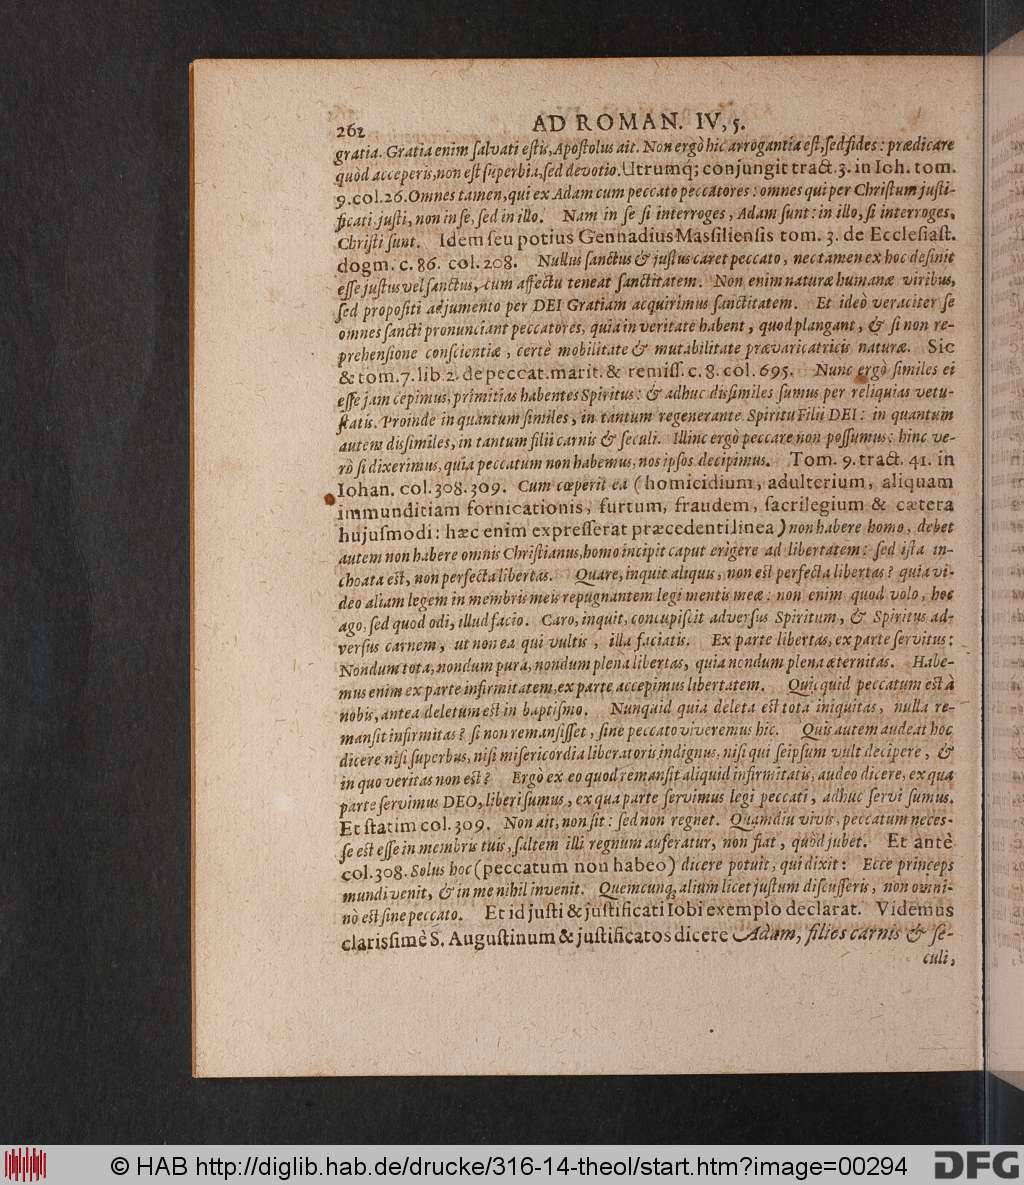 262 AD ROMAN. IV, 5.
gratia. Gratia enim ſalvati eſtis, Apoſtolus ait. Non ergò hic arrogantia eſt, ſed fides: prædicare
quòd acceperis, non eſt ſuperbia, ſed devotio. Utrumq; conjungit tract. 3. in Ioh. tom.
9. col. 26. Omnes tamen, qui ex Adam cum peccato peccatores: omnes qui per Chriſtum juſti-
ficati, juſti, non in ſe, ſed in illo. Nam in ſe ſi interroges, Adam ſunt: in illo, ſi interroges,
Chriſti ſunt. Idem ſeu potius Gennadius Maſſilienſis tom. 3. de Eccleſiaſt.
dogm. c. 86. col. 208. Nullus ſanctus & juſtus caret peccato, nec tamen ex hoc deſinit
eſſe juſtus vel ſanctus, cum affectu teneat ſanctitatem. Non enim naturæ humanæ viribus,
ſed propoſiti adjumento per DEI Gratiam acquirimus ſanctitatem. Et ideò veraciter ſe
omnes ſancti pronunciant peccatores, quia in veritate habent, quod plangant, & ſi non re-
prehenſione conſcientiæ, certè mobilitate & mutabilitate prævaricatricis naturæ. Sic
& tom. 7. lib. 2. de peccat. marit. & remiſſ. c. 8. col. 695. Nunc ergò ſimiles ei
eſſe jam cepimus, primitias habentes Spiritus: & adhuc diſſimiles ſumus per reliquias vetu-
ſtatis. Proinde in quantum ſimiles, in tantum regenerante Spiritu Filii DEI: in quantum
autem diſſimiles, in tantum filii carnis & ſeculi. Illinc ergò peccare non poſſumus: hinc ve-
rò ſi dixerimus, quia peccatum non habemus, nos ipſos decipimus. Tom. 9. tract. 41. in
Iohan. col. 308. 309. Cum cœperit ea (homicidium, adulterium, aliquam
immunditiam fornicationis, furtum, fraudem, ſacrilegium & cætera
hujuſmodi: hæc enim expreſſerat præcedenti linea) non habere homo, debet
autem non habere omnis Chriſtianus, homo incipit caput erigere ad libertatem: ſed iſta in-
choata eſt, non perfecta libertas. Quare, inquit aliquis, non eſt perfecta libertas? quia vi-
deo aliam legem in membris meis repugnantem legi mentis meæ: non enim quod volo, hoc
ago, ſed quod odi, illud facio. Caro, inquit, concupiſcit adverſus Spiritum, & Spiritus ad-
verſus carnem, ut non ea qui vultis, illa faciatis. Ex parte libertas, ex parte ſervitus:
Nondum tota, nondum pura, nondum plena libertas, quia nondum plena æternitas. Habe-
mus enim ex parte infirmitatem, ex parte accepimus libertatem. Quicquid peccatum eſt à
nobis, antea deletum eſt in baptiſmo. Nunquid quia deleta eſt tota iniquitas, nulla re-
manſit infirmitas? ſi non remanſiſſet, ſine peccato viveremus hic. Quis autem audeat hoc
dicere niſi ſuperbus, niſi miſericordia liberatoris indignus, niſi qui ſeipſum vult decipere, &
in quo veritas non eſt? Ergò ex eo quod remanſit aliquid infirmitatis, audeo dicere, ex qua
parte ſervimus DEO, liberi ſumus, ex qua parte ſervimus legi peccati, adhuc ſervi ſumus.
Et ſtatim col. 309. Non ait, non ſit: ſed non regnet. Quamdiu vivis, peccatum neces-
ſe eſt eſſe in membris tuis, ſaltem illi regnum auferatur, non fiat, quòd jubet. Et antè
col. 308. Solus hoc (peccatum non habeo) dicere potuit, qui dixit: Ecce princeps
mundi venit, & in me nihil invenit. Quemcunq; alium licet juſtum diſcuſſeris, non omni-
nò eſt ſine peccato. Et id juſti & juſtificati Iobi exemplo declarat. Videmus
clariſſimè S. Auguſtinum & juſtificatos dicere Adam, filios carnis & ſe-
culi,
© HAB http://diglib.hab.de/drucke/316-14-theol/start.htm?image=00294 DFG